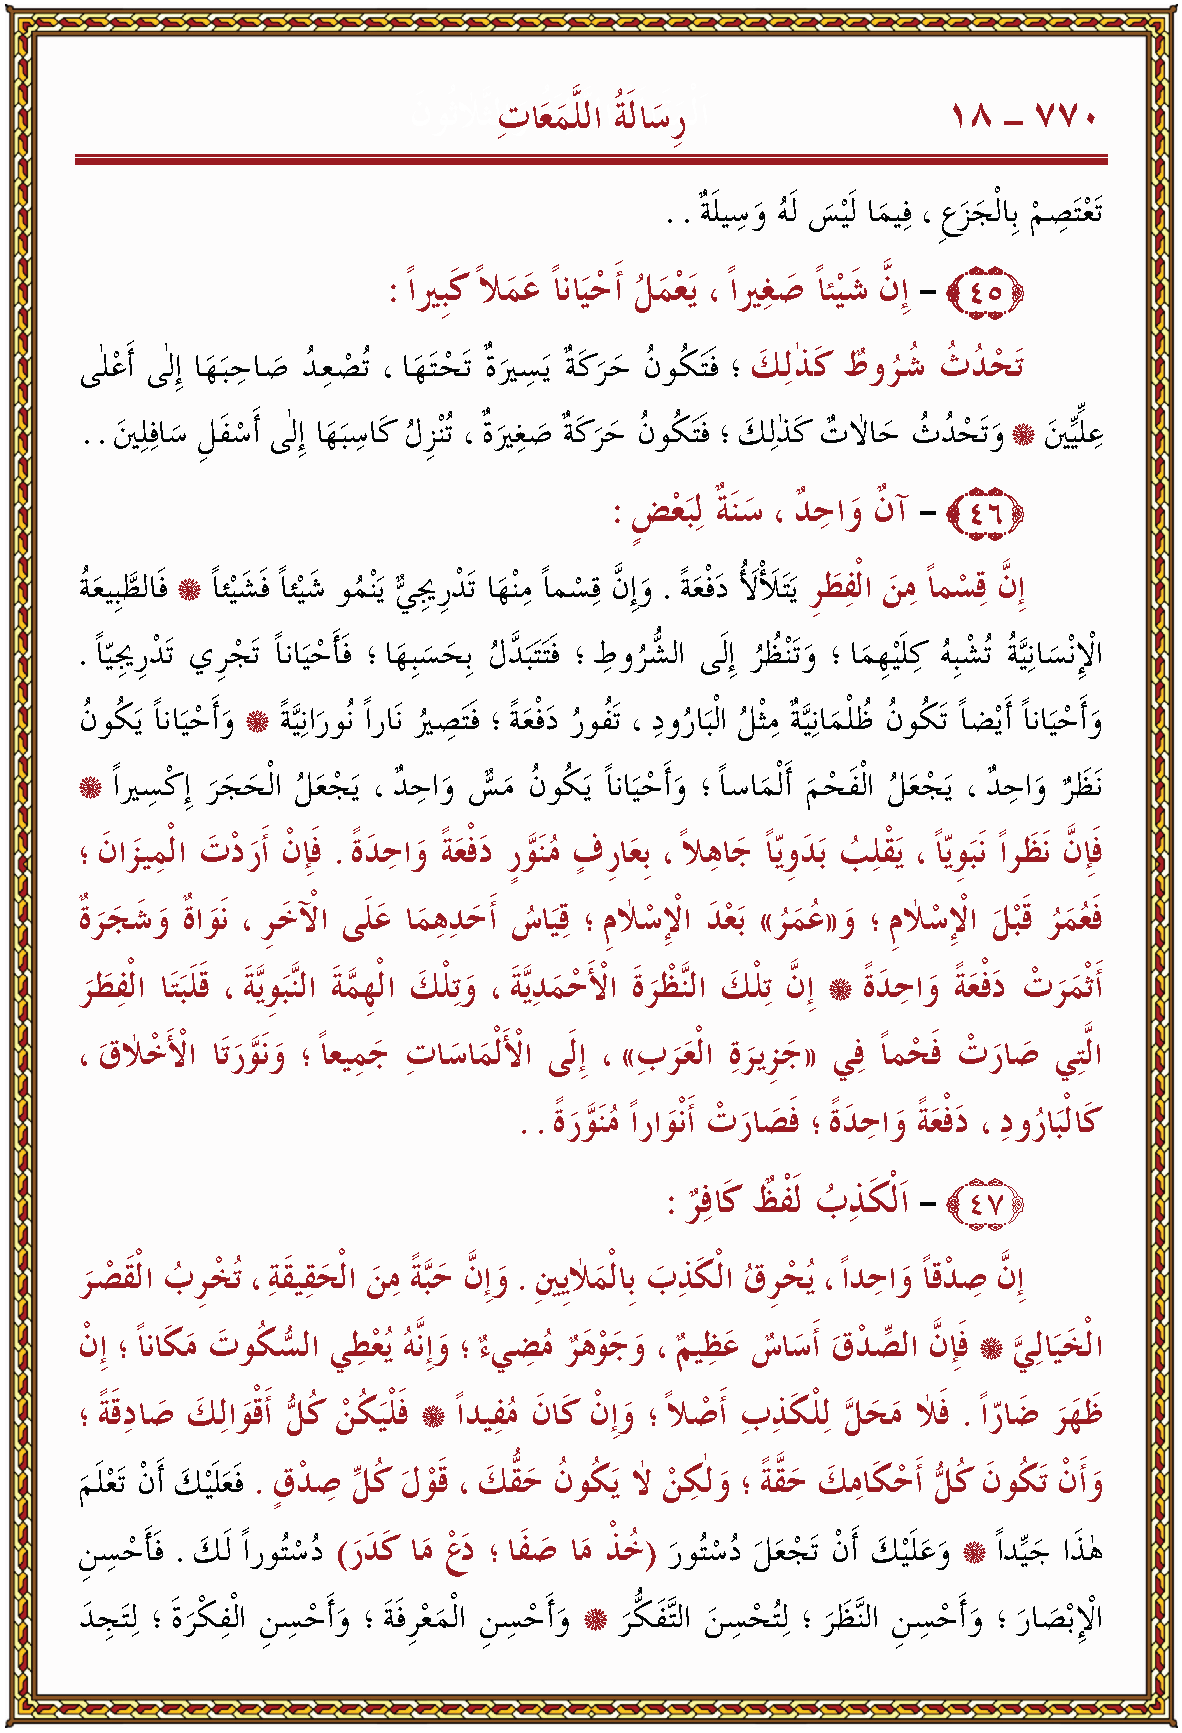 ٧٧٠ ــ ١٨ رِسَالَةُ اللَّمَعَاتِ
تَعْتَصِمْ بِالْجَزَعِ ، فِيمَا لَيْسَ لَهُ وَسِيلَةٌ . .
﴿٤٥﴾ – إِنَّ شَيْئاً صَغِيراً ، يَعْمَلُ أَحْيَاناً عَمَلاً كَبِيراً :
تَحْدُثُ شُرُوطٌ كَذٰلِكَ ؛ فَتَكُونُ حَرَكَةٌ يَسِيرَةٌ تَحْتَهَا ، تُصْعِدُ صَاحِبَهَا إِلٰى أَعْلٰى
عِلِّيِّينَ ۞ وَتَحْدُثُ حَالاٰتٌ كَذٰلِكَ ؛ فَتَكُونُ حَرَكَةٌ صَغِيرَةٌ ، تُنْزِلُ كَاسِبَهَا إِلٰى أَسْفَلِ سَافِلِينَ . .
﴿٤٦﴾ – آنٌ وَاحِدٌ ، سَنَةٌ لِبَعْضٍ :
إِنَّ قِسْماً مِنَ الْفِطَرِ يَتَلَأْلَأُ دَفْعَةً . وَإِنَّ قِسْماً مِنْهَا تَدْرِيجِيٌّ يَنْمُو شَيْئاً فَشَيْئاً ۞ فَالطَّبِيعَةُ
الْإِنْسَانِيَّةُ تُشْبِهُ كِلَيْهِمَا ؛ وَتَنْظُرُ إِلَى الشُّرُوطِ ؛ فَتَتَبَدَّلُ بِحَسَبِهَا ؛ فَأَحْيَاناً تَجْرِي تَدْرِيجِيّاً .
وَأَحْيَاناً أَيْضاً تَكُونُ ظُلْمَانِيَّةٌ مِثْلُ الْبَارُودِ ، تَفُورُ دَفْعَةً ؛ فَتَصِيرُ نَاراً نُورَانِيَّةً ۞ وَأَحْيَاناً يَكُونُ
نَظَرٌ وَاحِدٌ ، يَجْعَلُ الْفَحْمَ أَلْمَاساً ؛ وَأَحْيَاناً يَكُونُ مَسٌّ وَاحِدٌ ، يَجْعَلُ الْحَجَرَ إِكْسِيراً ۞
فَإِنَّ نَظَراً نَبَوِيّاً ، يَقْلِبُ بَدَوِيّاً جَاهِلاً ، بِعَارِفٍ مُنَوَّرٍ دَفْعَةً وَاحِدَةً . فَإِنْ أَرَدْتَ الْمِيزَانَ ؛
فَعُمَرُ قَبْلَ الْإِسْلاٰمِ ؛ وَ«عُمَرُ» بَعْدَ الْإِسْلاٰمِ ؛ قِيَاسُ أَحَدِهِمَا عَلَى الْآخَرِ ، نَوَاةٌ وَشَجَرَةٌ
أَثْمَرَتْ دَفْعَةً وَاحِدَةً ۞ إِنَّ تِلْكَ النَّظْرَةَ الْأَحْمَدِيَّةَ ، وَتِلْكَ الْهِمَّةَ النَّبَوِيَّةَ ، قَلَبَتَا الْفِطَرَ
الَّتِي صَارَتْ فَحْماً فِي «جَزِيرَةِ الْعَرَبِ» ، إِلَى الْأَلْمَاسَاتِ جَمِيعاً ؛ وَنَوَّرَتَا الْأَخْلاٰقَ ،
كَالْبَارُودِ ، دَفْعَةً وَاحِدَةً ؛ فَصَارَتْ أَنْوَاراً مُنَوَّرَةً . .
﴿٤٧﴾ – اَلْكَذِبُ لَفْظٌ كَافِرٌ :
إِنَّ صِدْقاً وَاحِداً ، يُحْرِقُ الْكَذِبَ بِالْمَلاٰيِينِ . وَإِنَّ حَبَّةً مِنَ الْحَقِيقَةِ ، تُخْرِبُ الْقَصْرَ
الْخَيَالِيَّ ۞ فَإِنَّ الصِّدْقَ أَسَاسٌ عَظِيمٌ ، وَجَوْهَرٌ مُضِيءٌ ؛ وَإِنَّهُ يُعْطِي السُّكُوتَ مَكَاناً ؛ إِنْ
ظَهَرَ ضَارّاً . فَلاٰ مَحَلَّ لِلْكَذِبِ أَصْلاً ؛ وَإِنْ كَانَ مُفِيداً ۞ فَلْيَكُنْ كُلُّ أَقْوَالِكَ صَادِقَةً ؛
وَأَنْ تَكُونَ كُلُّ أَحْكَامِكَ حَقَّةً ؛ وَلٰكِنْ لاٰ يَكُونُ حَقُّكَ ، قَوْلَ كُلِّ صِدْقٍ . فَعَلَيْكَ أَنْ تَعْلَمَ
هٰذَا جَيِّداً ۞ وَعَلَيْكَ أَنْ تَجْعَلَ دُسْتُورَ (خُذْ مَا صَفَا ؛ دَعْ مَا كَدَرَ) دُسْتُوراً لَكَ . فَأَحْسِنِ
الْإِبْصَارَ ؛ وَأَحْسِنِ النَّظَرَ ؛ لِتُحْسِنَ التَّفَكُّرَ ۞ وَأَحْسِنِ الْمَعْرِفَةَ ؛ وَأَحْسِنِ الْفِكْرَةَ ؛ لِتَجِدَ